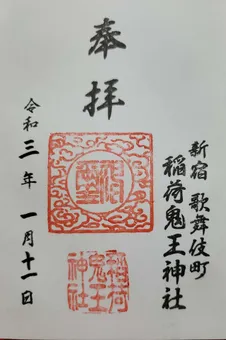 奉拝
新宿 歌舞伎町
稲荷鬼王神社
令和三年一月十一日
稲荷
鬼王
神社